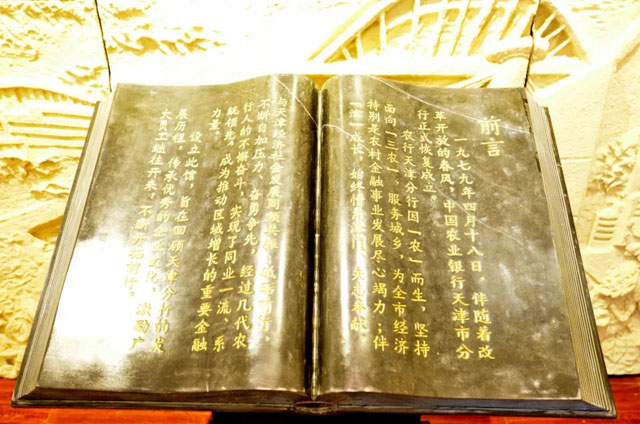 前言
一九七九年四月十八日，伴随着改
革开放的春风，中国农业银行天津市分
行正式恢复成立。
农行天津分行因“农”而生，坚持
面向“三农”，服务城乡，为全市经济
特别是农村金融事业发展尽心竭力；伴
“津”成长，始终情系津门，矢志奉献，
与天津经济社会发展同频共振，砥砺前行，
不断自加压力，奋勇争先，经过几代农
行人的不懈奋斗，实现了同业一流、系
统领先，成为推动区域增长的重要金融
力量。
设立此馆，旨在回顾天津分行的发
展历程，传承优秀的企业文化，激励广
大员工继往开来，不断前行。